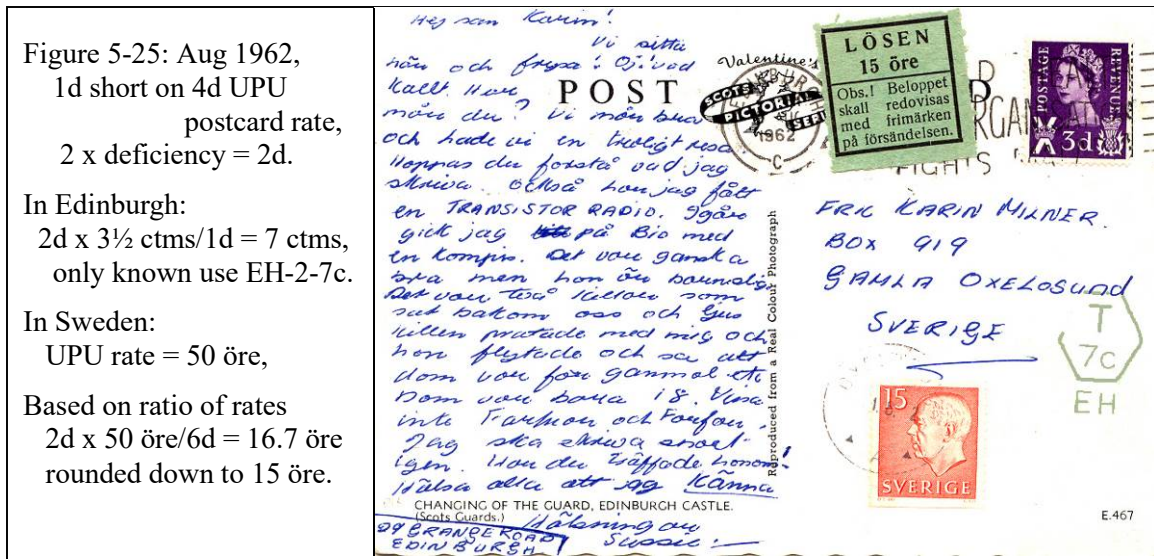 Figure 5-25: Aug 1962,
1d short on 4d UPU
postcard rate,
2 x deficiency = 2d.
In Edinburgh:
2d x 3½ ctms/1d = 7 ctms,
only known use EH-2-7c.
In Sweden:
UPU rate = 50 öre,
Based on ratio of rates
2d x 50 öre/6d = 16.7 öre
rounded down to 15 öre.
Hej san Karin!
Vi sitta
här och frysa! Oj! vad
kallt. Hur
mår du? Vi mår bra
och hade vi en trevligt resa.
Hoppas du förstå vad jag
skriva. Också har jag fått
en TRANSISTOR RADIO. Igår
gick jag på Bio med
en kompis. Det var ganska
bra men hon är barnslig.
Det var två killar som
sat bakom oss och
killen pratade med mig och
hon flyttade och sa att
dom var för gammal
Dom var bara 18. Visa
inte Farmor och Farfar.
Jag ska skriva
igen. Har du träffade honom!
Hälsa alla att jag känna
Hälsning av
Sussie
29 GRANGE ROAD
EDINBURGH
CHANGING OF THE GUARD, EDINBURGH CASTLE.
(Scots Guards.)
POST
Valentine's
SCOTS
PICTORIAL
SERIES
EDINBURGH
1962
C
LÖSEN
15 öre
Obs.! Beloppet
skall redovisas
med frimärken
på försändelsen.
RGAN
FIGHTS
POSTAGE
REVENUE
3d
Reproduced from a Real Colour Photograph
FRK KARIN MILNER.
BOX 919
GAMLA OXELOSUND
SVERIGE
T
7c
EH
15
SVERIGE
E.467